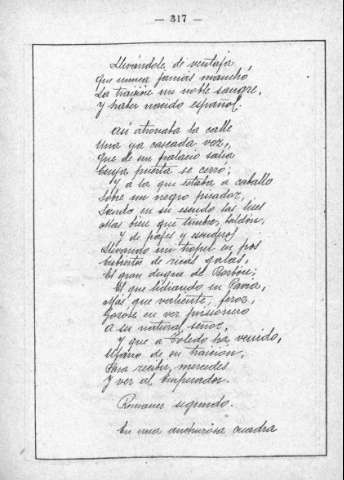 — 317 —
Llevándole de ventaja,
Que nunca jamás manchó
La traición mi noble sangre,
Y haber nacido español.
Así atronaba la calle
Una ya cascada voz,
Que de un palacio salía
Cuya puerta se cerró;
Y a la que estaba a caballo
Sobre un negro pisador,
Siendo en su escudo las lises
Mas bien que timbre, baldón,
Y de pajes y escuderos
Llevando un tropel en pos
Cubiertos de ricas galas,
El gran duque de Borbón;
El que lidiando en Pavía,
Más que valiente, feroz,
Gozóse en ver prisionero
A su natural señor,
Y que a Toledo ha venido,
Ufano de su traición,
Para recibir mercedes
Y ver al Emperador.
Romance segundo.
En una anchurosa cuadra